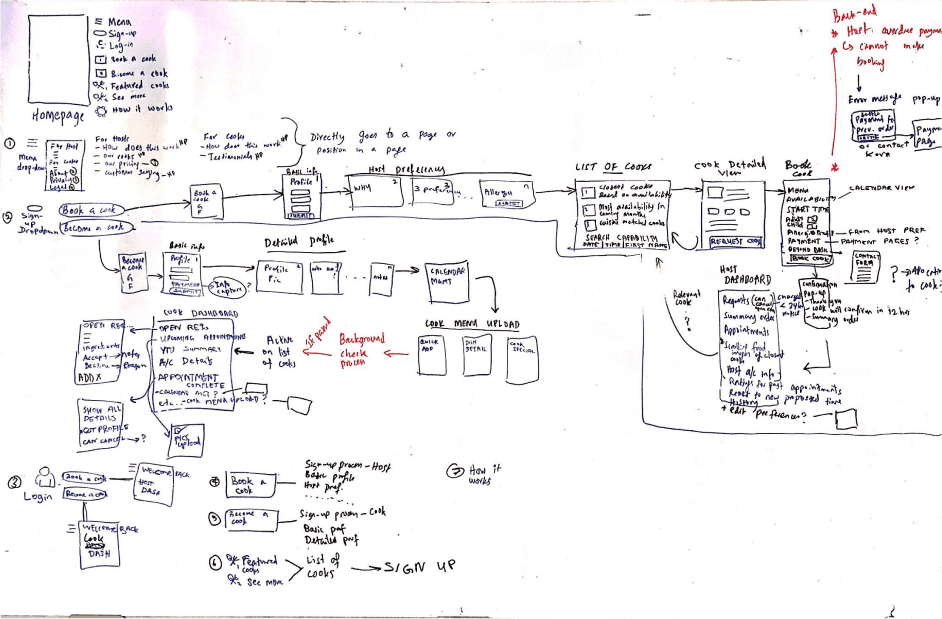 Homepage
Menu
Sign-up
Log-in
Book a cook
Become a cook
Featured cooks
See more
How it works
Back-end
* Host: overdue
↳ cannot make
booking
Error message pop-up
Payment for
prev. order
or contact
Payment
Page
①
Menu
dropdown
For Host
About
Privacy
Legal
For Hosts
- How does this work
- Our cooks
- Our pricing
- Customers saying
For cooks
- How does this work
- Testimonials
Directly goes to a page or
position in a page
②
Sign-
up
Dropdown
Book a cook
Become a cook
Book a
cook
G
F
Basic info
Profile 1
SUBMIT
Host preferences
WHY 2
3 preferences
Allergies n
LIST OF COOKS
1 Closest cooks
Based on availability
2 Most availability in
coming months
3 cuisine matched cooks
SEARCH CAPABILITY
DATE TIME FIRST NAME
COOK Detailed
View
REQUEST COOK
Book
Cook
MENU
AVAILABILITY
START TIME
Adults
Child
PAYMENT
BOOK COOK
CALENDAR VIEW
FROM HOST PREF
PAYMENT PAGES?
CONTACT
FORM
?
to cook?
Confirmation
Pop-up
- Thank you
- Cook will confirm in 12 hrs
- Summary order
Become
a cook
G
F
Basic info
Profile 1
PAYMENT
SUBMIT
Info
capture?
Detailed profile
Profile 2
Pic
n
CALENDAR
MGMT
COOK MENU UPLOAD
QUICK
ADD
DISH
DETAIL
COOK
SPECIAL
Background
check
process
if passed
Active
on list
of cooks
COOK DASHBOARD
OPEN REQs
UPCOMING APPOINTMENTS
YTD SUMMARY
A/C Details
APPOINTMENT
COMPLETE
- CALENDAR MGT?
etc... - COOK MENU UPLOAD?
OPEN REQ
Ingredients
Accept → notes
Decline → Reason
ADD X
SHOW ALL
DETAILS
HOST PROFILE
CAN CANCEL → ?
PICS
upload
HOST
DASHBOARD
Relevant
cook
?
Requests (can
cancel
charged
< 24 hr
notice
Summary order
Appointments
images of closest
cooks
Host a/c info
Ratings for past appointments
React to new proposed time
History
+ edit preferences?
③
Login
Book a cook
Become a cook
WELCOME BACK
HOST
DASH
WELCOME BACK
Cook
DASH
④
Book a
cook
Sign-up process - Host
Basic profile
Host pref.
⑤
Become a
cook
Sign-up process - Cook
Basic prof
Detailed prof
⑥
Featured
cooks
See more
List of
cooks
SIGN UP
⑦ How it
works